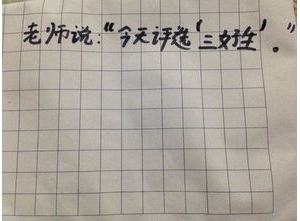 老师说：“今天评选‘三好生’。”